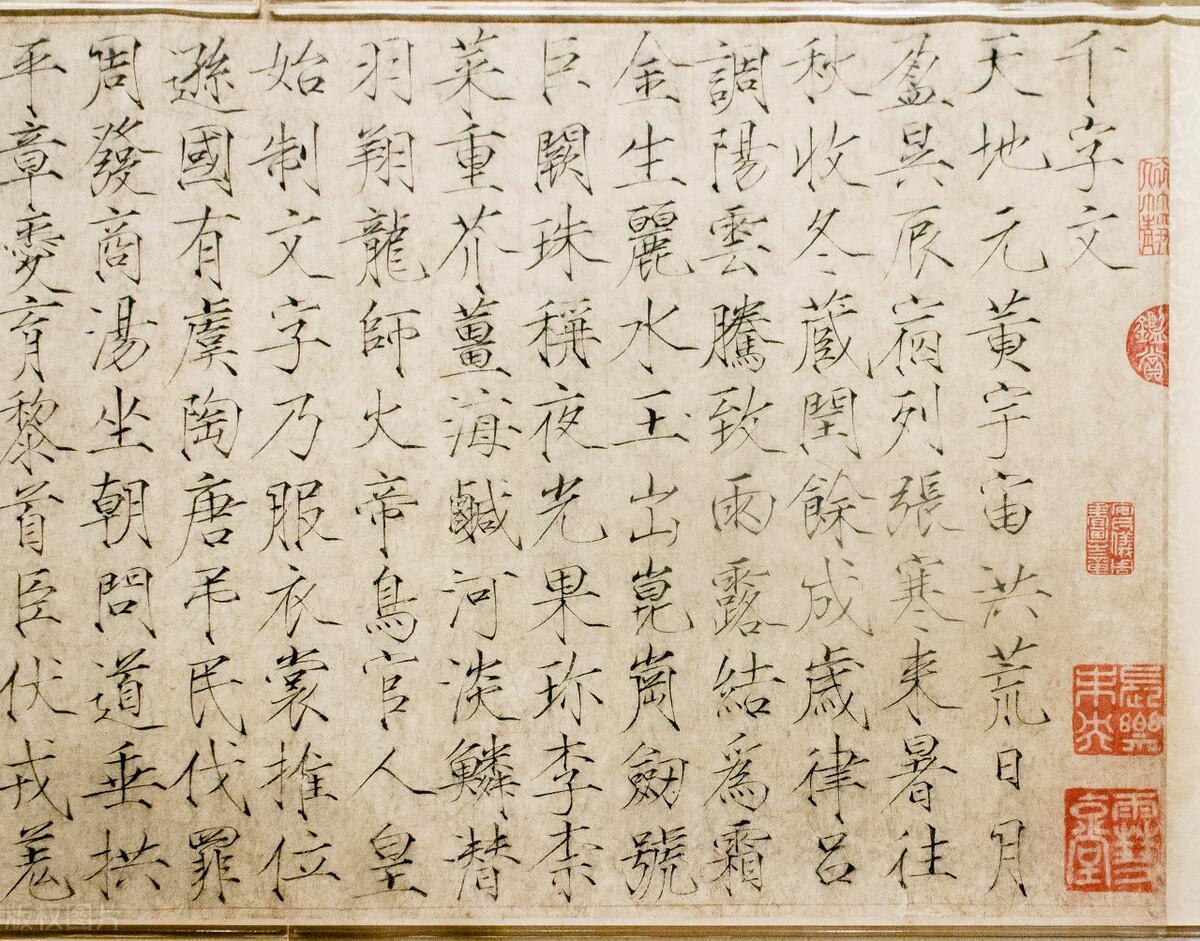 千字文
天地元黃宇宙洪荒日月
盈昃辰宿列張寒来暑往
秋收冬蔵閏餘成歲律呂
調陽雲騰致雨露結爲霜
金生麗水玉出崑崗劒號
巨闕珠稱夜光果珎李柰
菜重芥薑海鹹河淡鱗潛
羽翔龍師火帝鳥官人皇
始制文字乃服衣裳推位
遜國有虞陶唐弔民伐罪
周發商湯坐朝問道垂拱
平章愛育黎首臣伏戎羌
鑑賞
版权图片